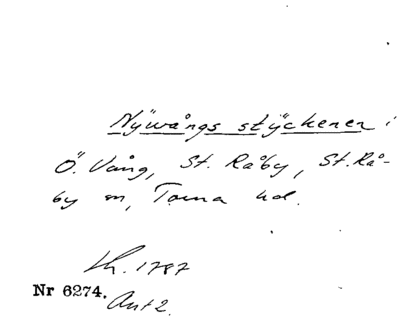 Nÿwångs stÿckener i
Ö. Vång, St. Råby, St. Rå-
by sn, Torna hd.
Lh. 1787
Nr 6274. Ant 2.